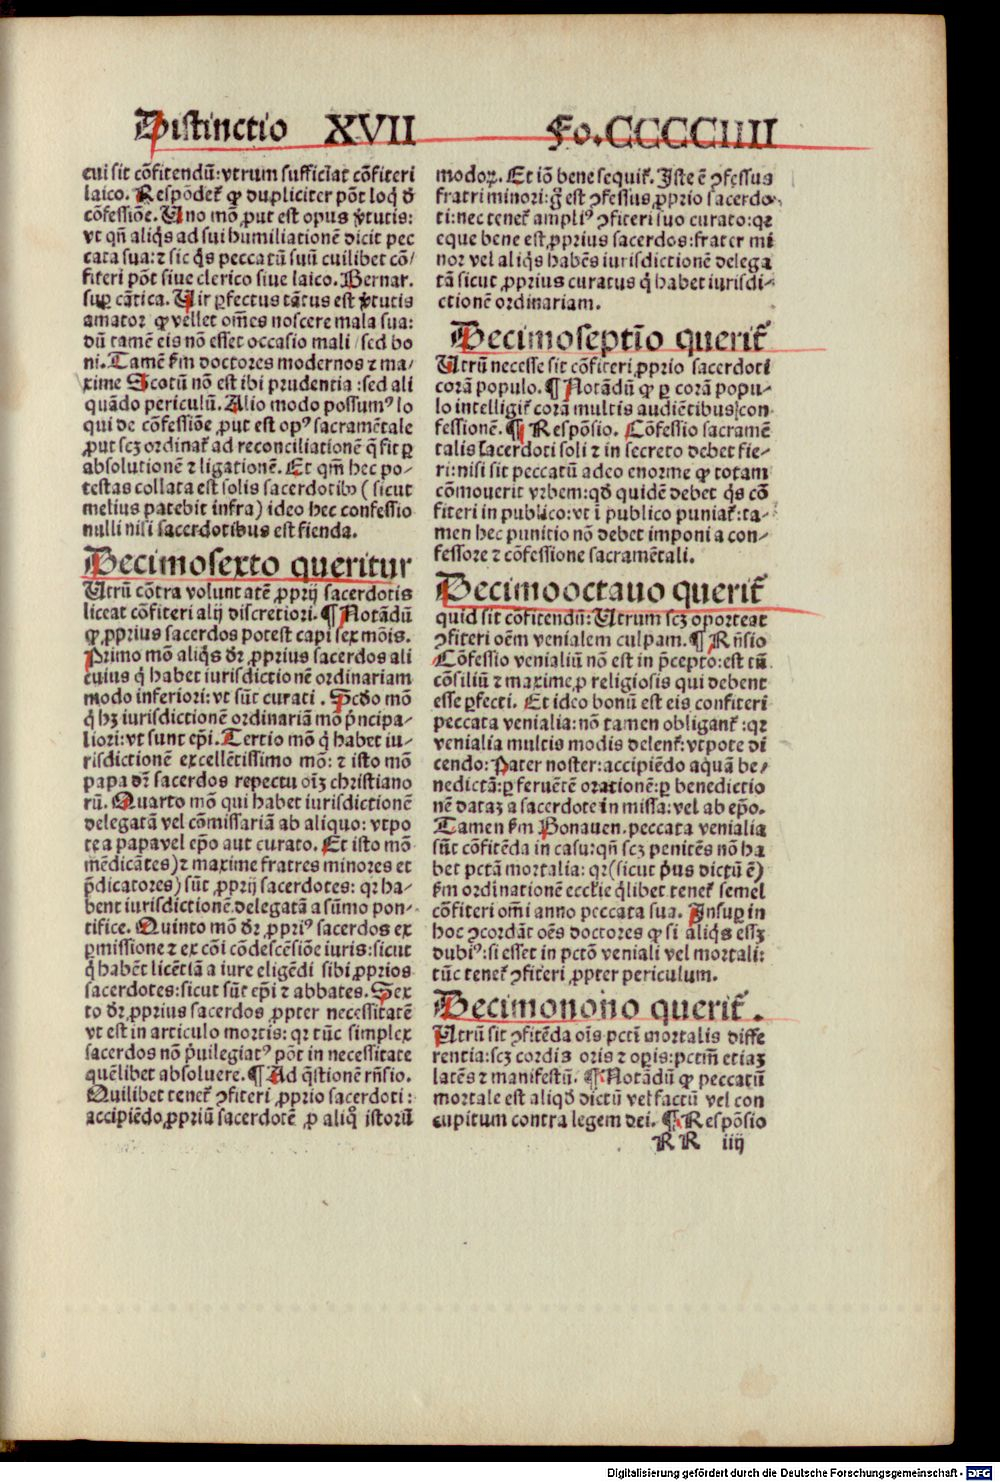 Distinctio XVII Fo.CCCCCIIII
cui sit cõfitendũ:vtrum sufficiat cõfiteri
laico. Respõdetʳ ꝙ dupliciter põt loqͥ d̃
cõfessiõe. Uno mõ ꝓut est opus v̾tutis:
vt qñ aliqͥs ad sui humiliationẽ dicit pec
cata sua:⁊ sic qͥs peccatũ suũ cuilibet cõ/
fiteri põt siue clerico siue laico. Bernar.
suꝑ cãtica. Uir ꝑfectus tãtus est v̾tutis
amator ꝙ vellet om̃es noscere mala sua:
dũ tamẽ eis nõ esset occasio mali / sed bo
ni. Tamẽ ẜm doctores modernos ⁊ ma/
xime Scotũ nõ est ibi prudentia :sed ali
quãdo periculũ. Alio modo possumꝰ lo
qui de cõfessiõe ꝓut est opꝰ sacramẽtale
ꝓut scꝫ ordinatʳ ad reconciliationẽ q̃ fit ꝑ
absolutionẽ ⁊ ligationẽ. Et qm̃ hec po/
testas collata est solis sacerdotibꝰ ( sicut
melius patebit infra) ideo hec confessio
nulli nisi sacerdotibus est fienda.
Decimosexto queritur
Utrũ cõtra voluntatẽ ꝓprij sacerdotis
liceat cõfiteri alij discretiori. ¶ Notãdũ
ꝙ ꝓprius sacerdos potest capi sex mõis.
Primo mõ aliqͥs dr̃ ꝓprius sacerdos ali
cuius qͥ habet iurisdictionẽ ordinariam
modo inferiori: vt sũt curati . Scd̾o mõ
qͥ hꝫ iurisdictionẽ ordinariã mõ pͥncipa/
liori: vt sunt ep̃i. Tertio mõ qͥ habet iu/
risdictionẽ excellẽtissimo mõ: ⁊ isto mõ
papa dr̃ sacerdos repectu oĩꝫ christiano
rũ. Quarto mõ qui habet iurisdictionẽ
delegatã vel cõmissariã ab aliquo: vtpo
te a papa vel ep̃o aut curato. Et isto mõ
mẽdicãtes) ⁊ maxime fratres minores et
p̃dicatores) sũt ꝓprij sacerdotes: qꝛ ha/
bent iurisdictionẽ delegatã a sũmo pon/
tifice. Quinto mõ dr̃ ꝓpriꝰ sacerdos ex
ꝑmissione ⁊ ex cõi cõdescẽsiõe iuris:sicut
qͥ habẽt licẽtiã a iure eligẽdi sibi ꝓprios
sacerdotes:sicut sũt ep̃i ⁊ abbates. Sex
to dr̃ ꝓprius sacerdos ꝓpter necessitatẽ
vt est in articulo mortis: qꝛ tũc simplex
sacerdos nõ p̃uilegiatꝰ põt in necessitate
quẽlibet absoluere. ¶ Ad q̃stionẽ rñsio.
Quilibet tenetʳ ꝯfiteri ꝓprio sacerdoti :
accipiẽdo ꝓpriũ sacerdotẽ ꝓ aliqͦ istorũ
modoꝝ. Et iõ bene sequitʳ. Iste ẽ ꝯfessus
fratri minori: g̃ est ꝯfessus ꝓprio sacerdo/
ti: nec tenetʳ ampliꝰ ꝯfiteri suo curato: qꝛ
eque bene est ꝓprius sacerdos: frater mi
nor vel aliqͥs habẽs iurisdictionẽ delega
tã sicut ꝓprius curatus qͥ habet iurisdi/
ctionẽ ordinariam.
Decimoseptĩo queritʳ
Utrũ necesse sit cõfiteri ꝓprio sacerdoti
corã populo. ¶ Notãdũ ꝙ ꝑ corã popu/
lo intelligitʳ corã multis audiẽtibus con
fessionẽ. ¶ Respõsio. Cõfessio sacramẽ
talis sacerdoti soli ⁊ in secreto debet fie/
ri: nisi sit peccatũ adeo enorme ꝙ totam
cõmouerit vrbem: qd̾ quidẽ debet qͥs cõ
fiteri in publico: vt ĩ publico puniatʳ: ta/
men hec punitio nõ debet imponi a con/
fessore ⁊ cõfessione sacramẽtali.
Decimooctauo queritʳ
quid sit cõfitendũ: Utrum scꝫ oporteat
ꝯfiteri oẽm venialem culpam. ¶ Rñsio
Cõfessio venialiũ nõ est in p̃cepto: est tñ
cõsiliũ ⁊ maxime ꝓ religiosis qui debent
esse ꝑfecti. Et ideo bonũ est eis confiteri
peccata venialia: nõ tamen obligantʳ : qꝛ
venialia multis modis delentʳ: vtpote di
cendo: Pater noster: accipiẽdo aquã be/
nedictã: ꝑ feruẽtẽ orationẽ: ꝑ benedictio
nẽ dataꝫ a sacerdote in missa: vel ab ep̃o.
Tamen ẜm Bonauen. peccata venialia
sũt cõfitẽda in casu: qñ scꝫ penitẽs nõ ha
bet pctã mortalia: qꝛ (sicut pͥus dictũ ẽ)
ẜm ordinationẽ eccl̾ie qͥlibet tenetʳ semel
cõfiteri om̃i anno peccata sua. Insuꝑ in
hoc ꝯcordãt oẽs doctores ꝙ si aliqͥs esset
dubiꝰ: si esset in pctõ veniali vel mortali:
tũc tenetʳ ꝯfiteri ꝓpter periculum.
Decimonono queritʳ .
Utrũ sit ꝯfitẽda oĩs pctĩ mortalis diffe
rentia: scꝫ cordis oris ⁊ oꝑis: pctm̃ etiaꝫ
latẽs ⁊ manifestũ. ¶ Notãdũ ꝙ peccatũ
mortale est aliqd̾ dictũ vel factũ vel con
cupitum contra legem dei. ¶ Respõsio
RR iiij
Digitalisierung gefördert durch die Deutsche Forschungsgemeinschaft - DFG